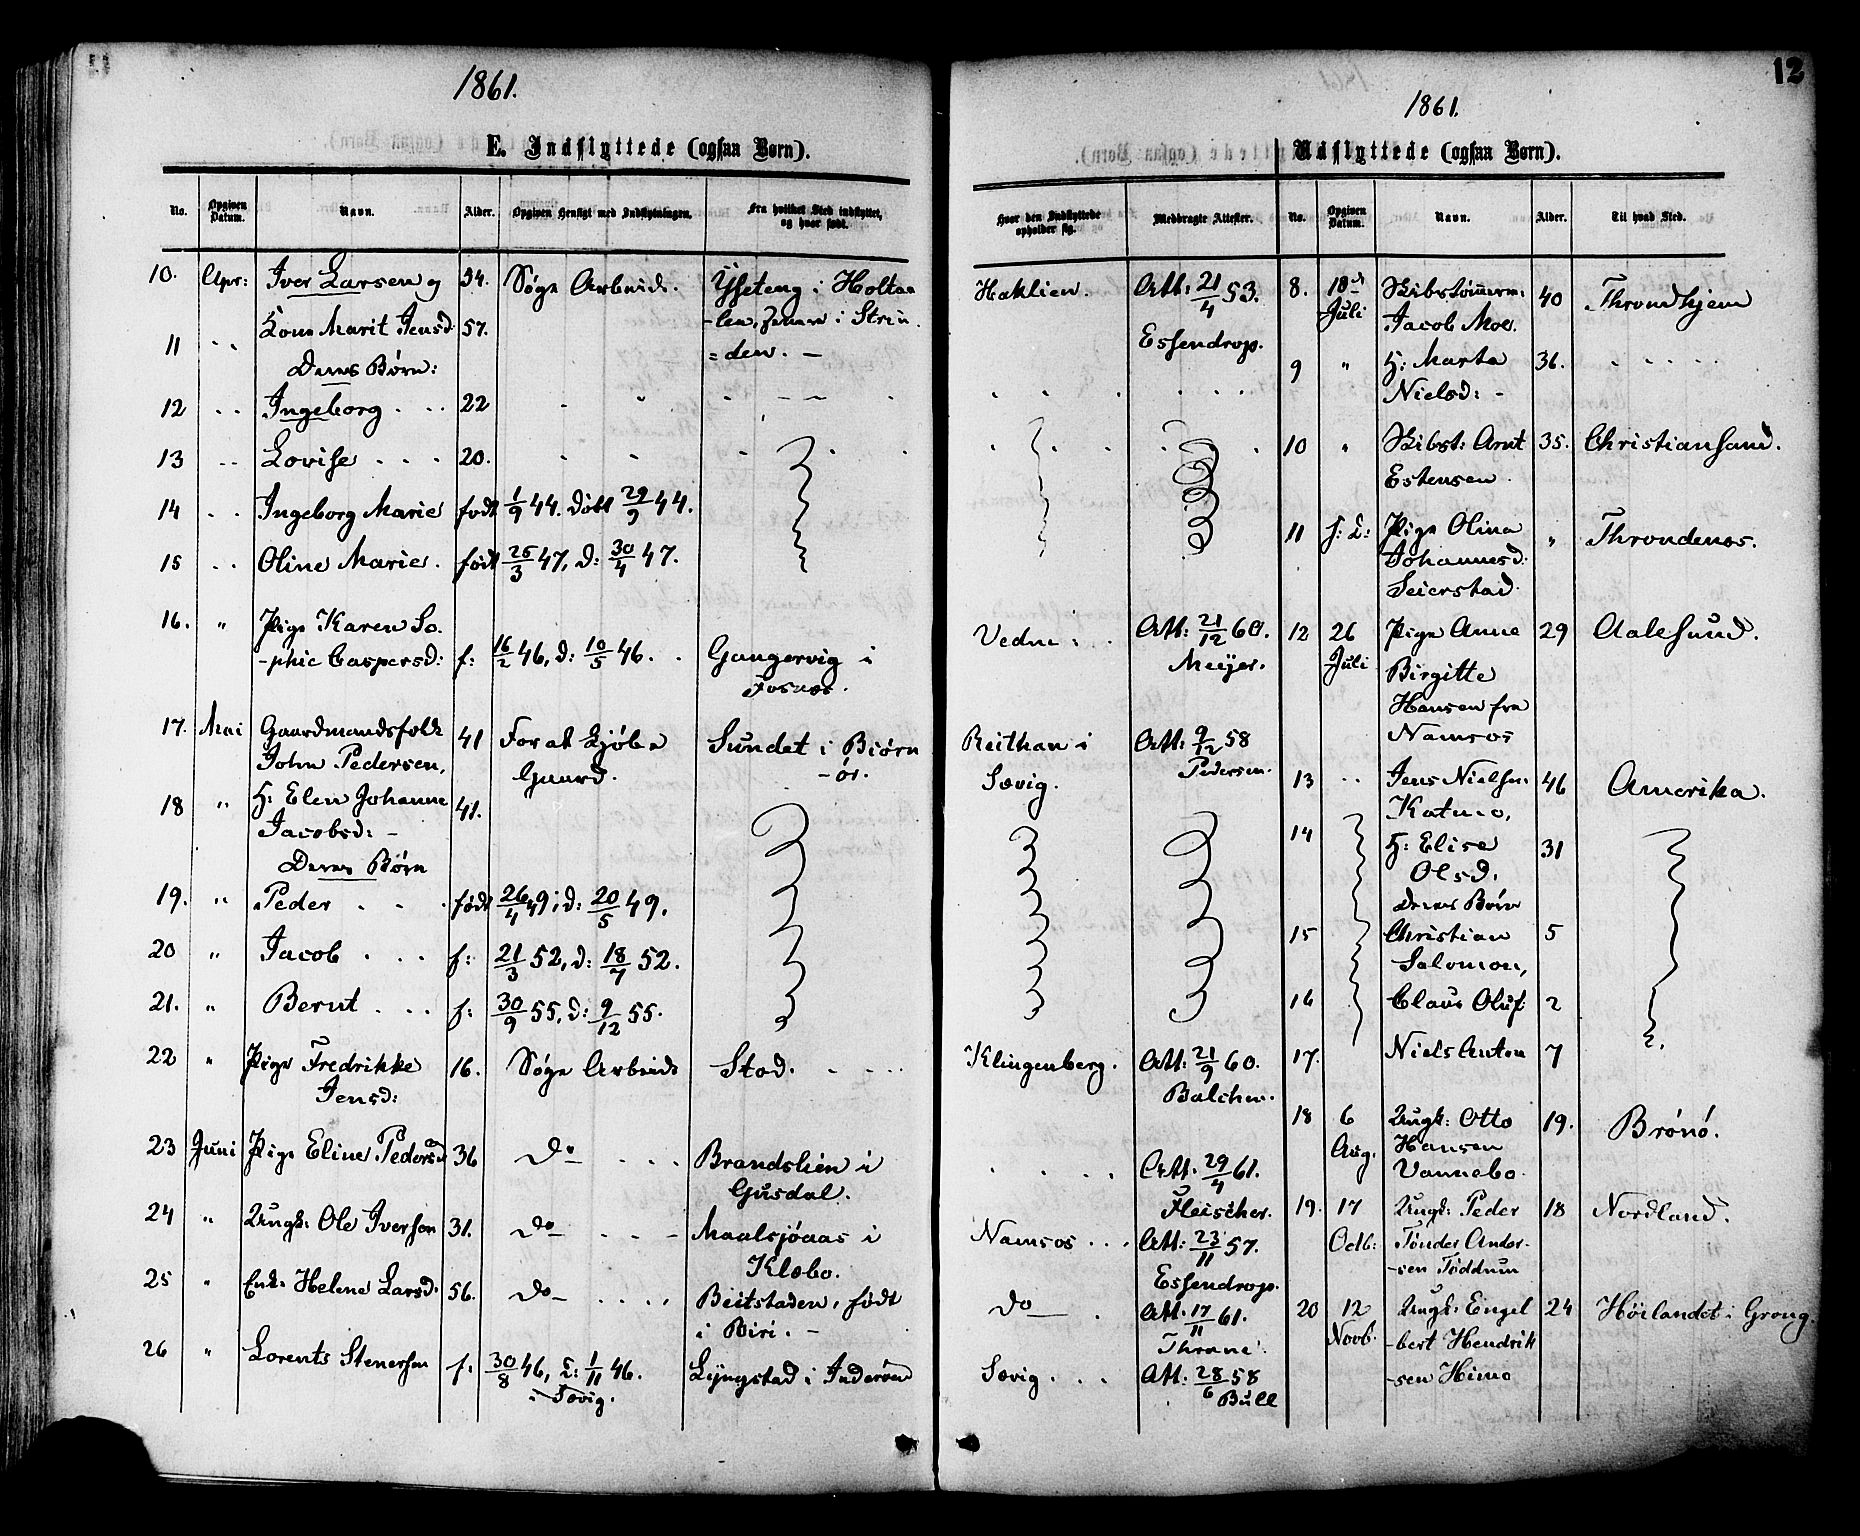 1861.
E. Indflyttede (ogsaa Børn).
No. Opgiven Datum. Navn. Alder. Opgiven Hensigt med Indflytningen. Fra hvilket Sted indflyttet, og hvor født.
10. Apr: Iver Larsen og 54. Søge Arbeide.
11 " Kone Marit Jensd: 57.
Deres Børn:
12 " Ingeborg 22
13 " Lovise 20.
14 " Ingeborg Marie født 1/9 44. døbt 29/9 44.
15 " Oline Marie. født 25/3 47, d: 30/4 47.
16. " Pige Karen So-
-phie Caspersd: f: 16/2 46, d: 10/5 46. Gangervig i
Fosnæs.
17. Mai Gaardmandsfolk
John Pedersen, 41 For at kjøbe Sundet i Biørn
Gaard. -ør.
18 " H: Elen Johanne
Jacobsd: - 41.
Deres Børn
19. " Peder født 26/4 49; d: 20/5 49.
20 " Jacob f: 21/3 52, d: 18/7 52.
21. " Bernt f: 30/9 55, d: 9/12 55.
22 " Pige Fredrikke 16. Søge Arbeide Stod.
Jensd:
23 Juni Pige Eline Pedersd 36 do Brandslien i
Gusdal.
24 " Ungk: Ole Iversen 31. do Maalsjøaas i
Klæbo.
25 " Enke Helene Larsd: 56. do Beitstaden, født
i Biri. -
26 " Lorents Stenersen f: 30/8 46, d: 1/11 46. Lyngstad i Inderøen
i Sævig.
12
1861.
Udflyttede (ogsaa Børn).
Hvor den Indflyttede opholder sig. Medbragte Attester. No. Opgiven Datum. Navn. Alder. Til hvad Sted.
Haklien. Att: 21/4 53. 8. 18de Skibstømmerm: 40 Throndhjem
Essendrop. Juli Jacob Moe.
9 " H: Marta 36.
Nielsd: -
10 " Skibst: Arnt 35. Christiansand.
Estensen.
11 s: D: Pige Olina " Throndenæs.
Johannesd:
Seierstad.
Vedne Att: 21/12 60. 12 26 Pige Anne 29 Aalesund.
Meijer. Juli Birgitte
Hansen fra
Namsos
Reithan i Att: 9/12 58
Sævig. Pedersen. 13 Jens Nielsen 46 Amerika.
Katmo,
14 H: Elise 31
Olsd.
Deres Børn
15 Christian 5
Salomon,
16 Claus Oluf 2
17. Niels Anton 7
Klingenberg. Att: 21/9 60.
Balchen.
18 6 Ungk: Otto 19. Brønø.
Aug. Hansen
Vannebo.
Att. 29/4 61.
Fleischer. 19. 17 Ungk: Peder 18 Nordland.
Namsos Att: 23/11 57. Octb: Tønder Ander-
Essendrop. -sen Tøddum
do Att: 17/11 61. 20 12 Ungk: Engel 24 Høilandet i Grong.
Thrane Novb. -bert Hendrik
Sævig. Att: 28/6 58 -sen Himo
Bull